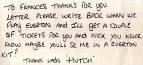 TO FRANCES THANKS FOR YOU
LETTER. PLEASE WRITE BACK WHEN WE
PLAY EVERTON AND I'LL GET A COUPLE
OF TICKETS FOR YOU AND NICK, YOU NEVER
KNOW MAYBE YOU'LL SE ME IN A EVERTON
KIT!
THANK LADS "HUTCH"